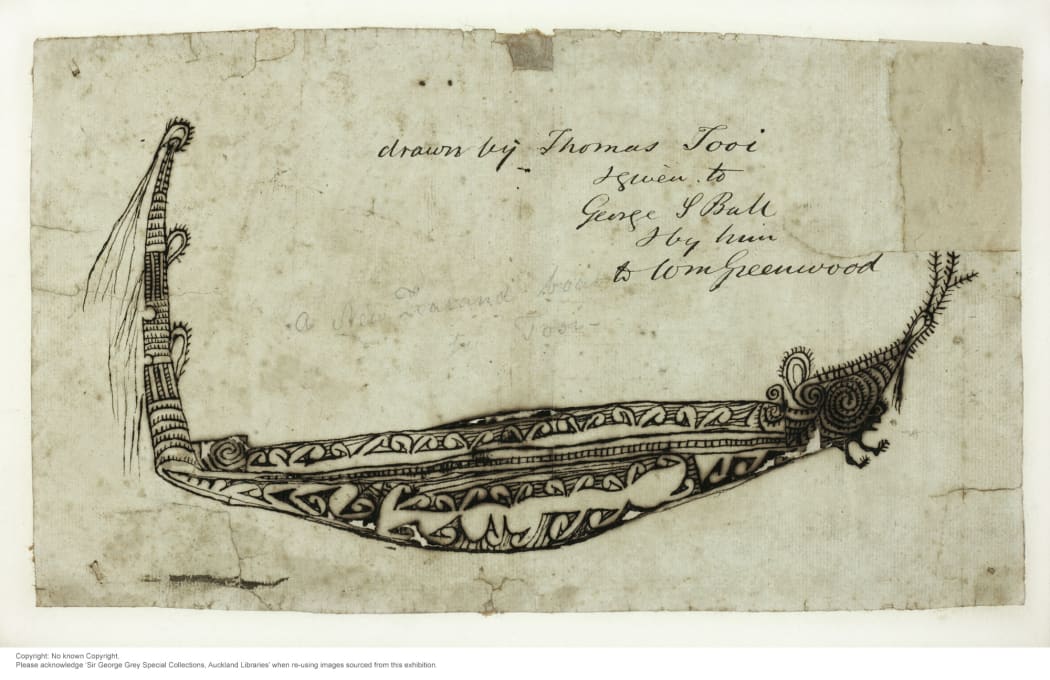 drawn by Thomas Tooi
& given to
George S Bull
& by him
to Wm Greenwood
a New Zealand boat
Tooi
Copyright: No known Copyright.
Please acknowledge 'Sir George Grey Special Collections, Auckland Libraries' when re-using images sourced from this exhibition.